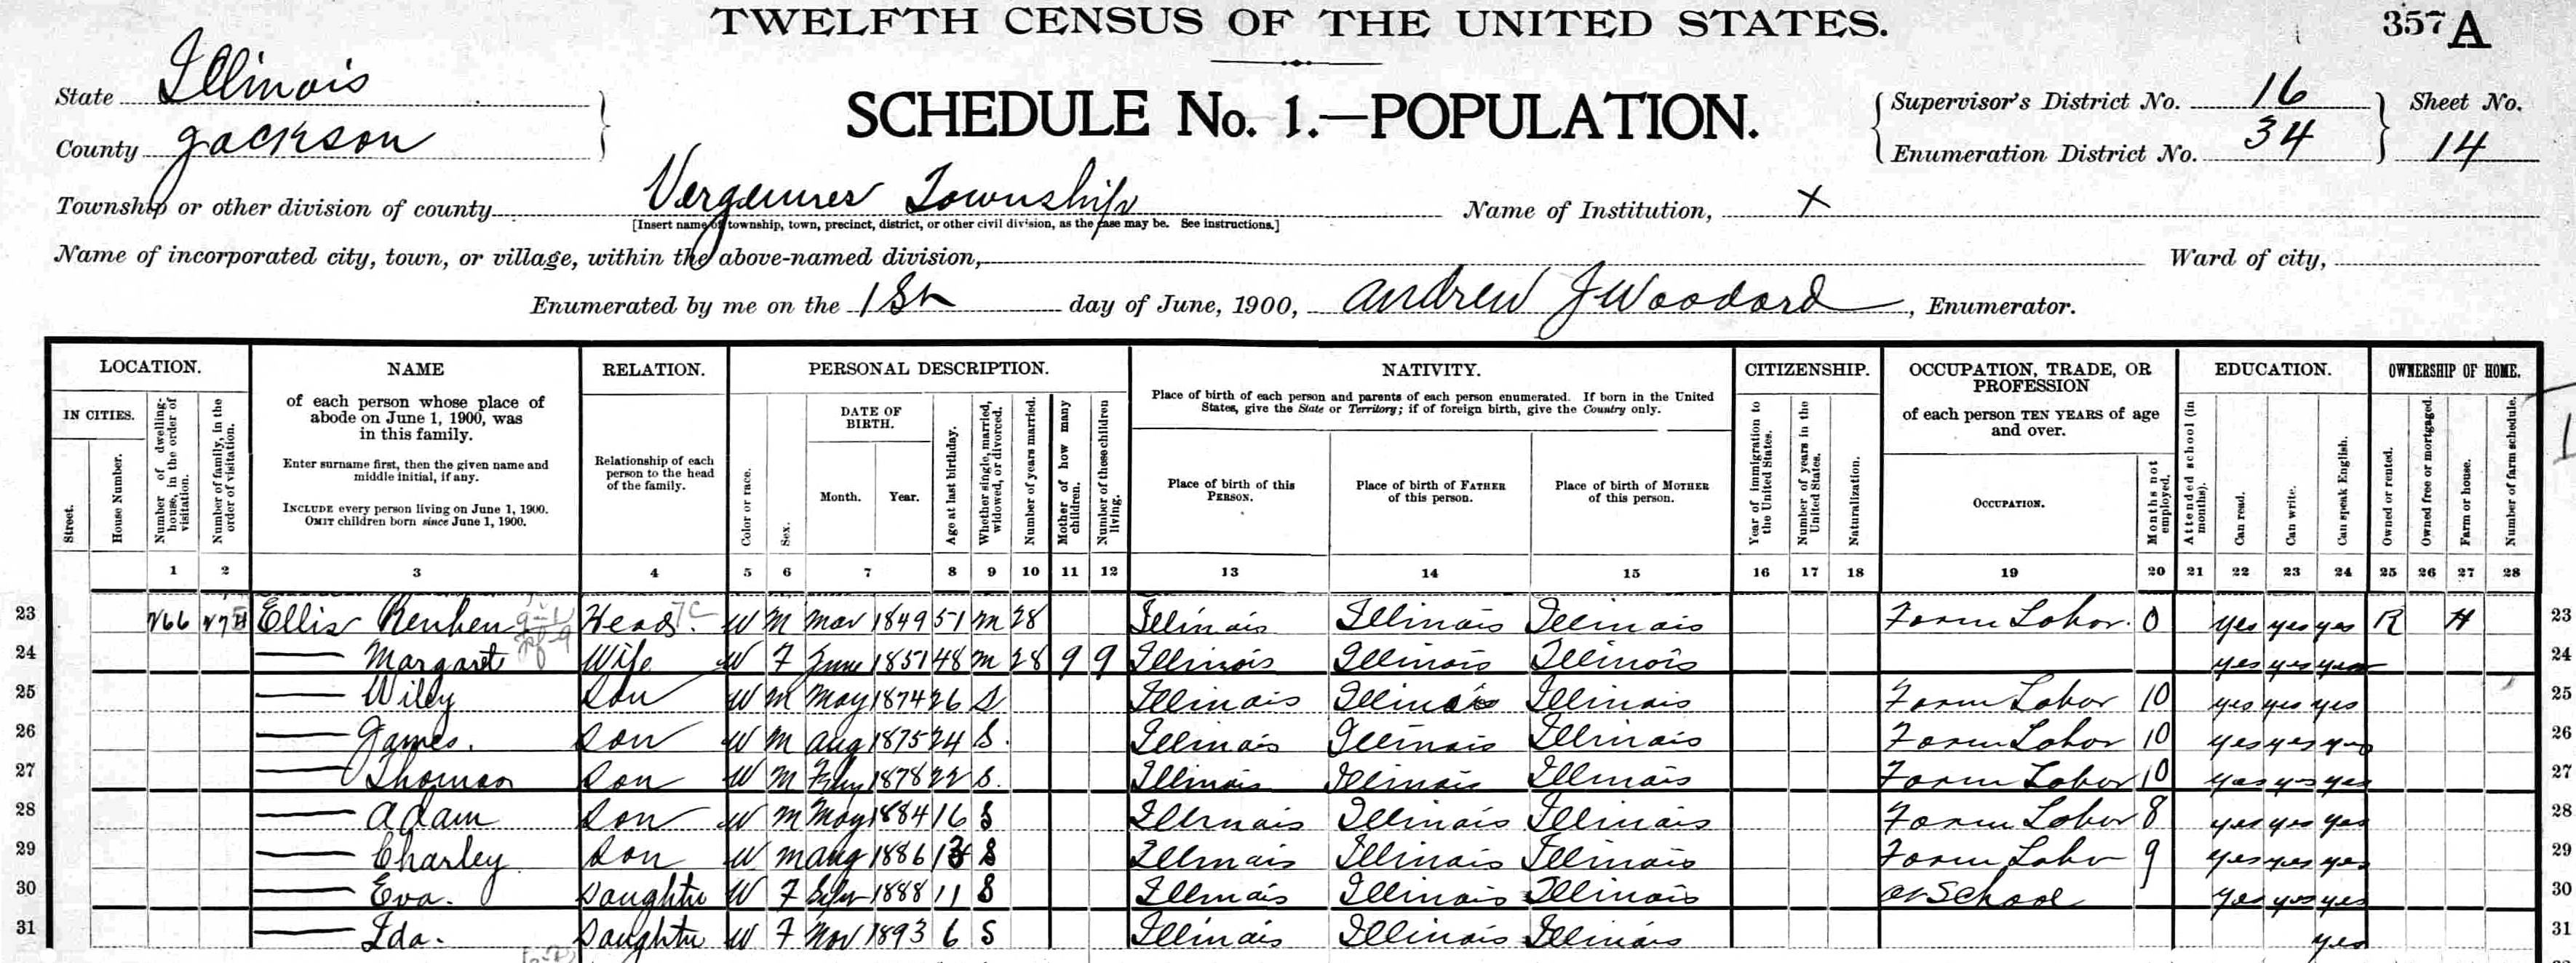 TWELFTH CENSUS OF THE UNITED STATES.
357 A
State Illinois
County Jackson
SCHEDULE No. 1.—POPULATION.
Supervisor's District No. 16
Enumeration District No. 34
Sheet No.
14
Township or other division of county Vergennes Township
[Insert name of township, town, precinct, district, or other civil division, as the case may be. See instructions.]
Name of Institution, X
Name of incorporated city, town, or village, within the above-named division,
Ward of city,
Enumerated by me on the 1st day of June, 1900, Andrew J Woodard, Enumerator.
LOCATION.
IN CITIES.
Street.
House Number.
Number of dwelling-house, in the order of visitation.
Number of family, in the order of visitation.
NAME
of each person whose place of
abode on June 1, 1900, was
in this family.
Enter surname first, then the given name and
middle initial, if any.
INCLUDE every person living on June 1, 1900.
OMIT children born since June 1, 1900.
RELATION.
Relationship of each
person to the head
of the family.
PERSONAL DESCRIPTION.
Color or race.
Sex.
DATE OF
BIRTH.
Month. Year.
Age at last birthday.
Whether single, married, widowed, or divorced.
Number of years married.
Mother of how many children.
Number of these children living.
NATIVITY.
Place of birth of each person and parents of each person enumerated. If born in the United
States, give the State or Territory; if of foreign birth, give the Country only.
Place of birth of this
PERSON.
Place of birth of FATHER
of this person.
Place of birth of MOTHER
of this person.
CITIZENSHIP.
Year of immigration to the United States.
Number of years in the United States.
Naturalization.
OCCUPATION, TRADE, OR
PROFESSION
of each person TEN YEARS of age
and over.
OCCUPATION.
Months not employed.
EDUCATION.
Attended school (in months).
Can read.
Can write.
Can speak English.
OWNERSHIP OF HOME.
Owned or rented.
Owned free or mortgaged.
Farm or house.
Number of farm schedule.
1 2 3 4 5 6 7 8 9 10 11 12 13 14 15 16 17 18 19 20 21 22 23 24 25 26 27 28
23 266 Ellis Reuben Head W M Mar 1849 51 M 28 Illinois Illinois Illinois Farm Labor 0 yes yes yes R H 23
24 — Margaret Wife W F June 1851 48 M 28 9 9 Illinois Illinois Illinois yes yes yes 24
25 — Wiley Son W M May 1874 26 S Illinois Illinois Illinois Farm Labor 10 yes yes yes 25
26 — James. Son W M Aug 1875 24 S. Illinois Illinois Illinois Farm Labor 10 yes yes yes 26
27 — Thomas Son W M Feby 1878 22 S. Illinois Illinois Illinois Farm Labor 10 yes yes yes 27
28 — Adam Son W M May 1884 16 S Illinois Illinois Illinois Farm Labor 8 yes yes yes 28
29 — Charley Son W M Aug 1886 13 S Illinois Illinois Illinois Farm Labor 9 yes yes yes 29
30 — Eva. Daughter W F Sept 1888 11 S Illinois Illinois Illinois at School yes yes yes 30
31 — Ida. Daughter W F Nov 1893 6 S Illinois Illinois Illinois yes 31